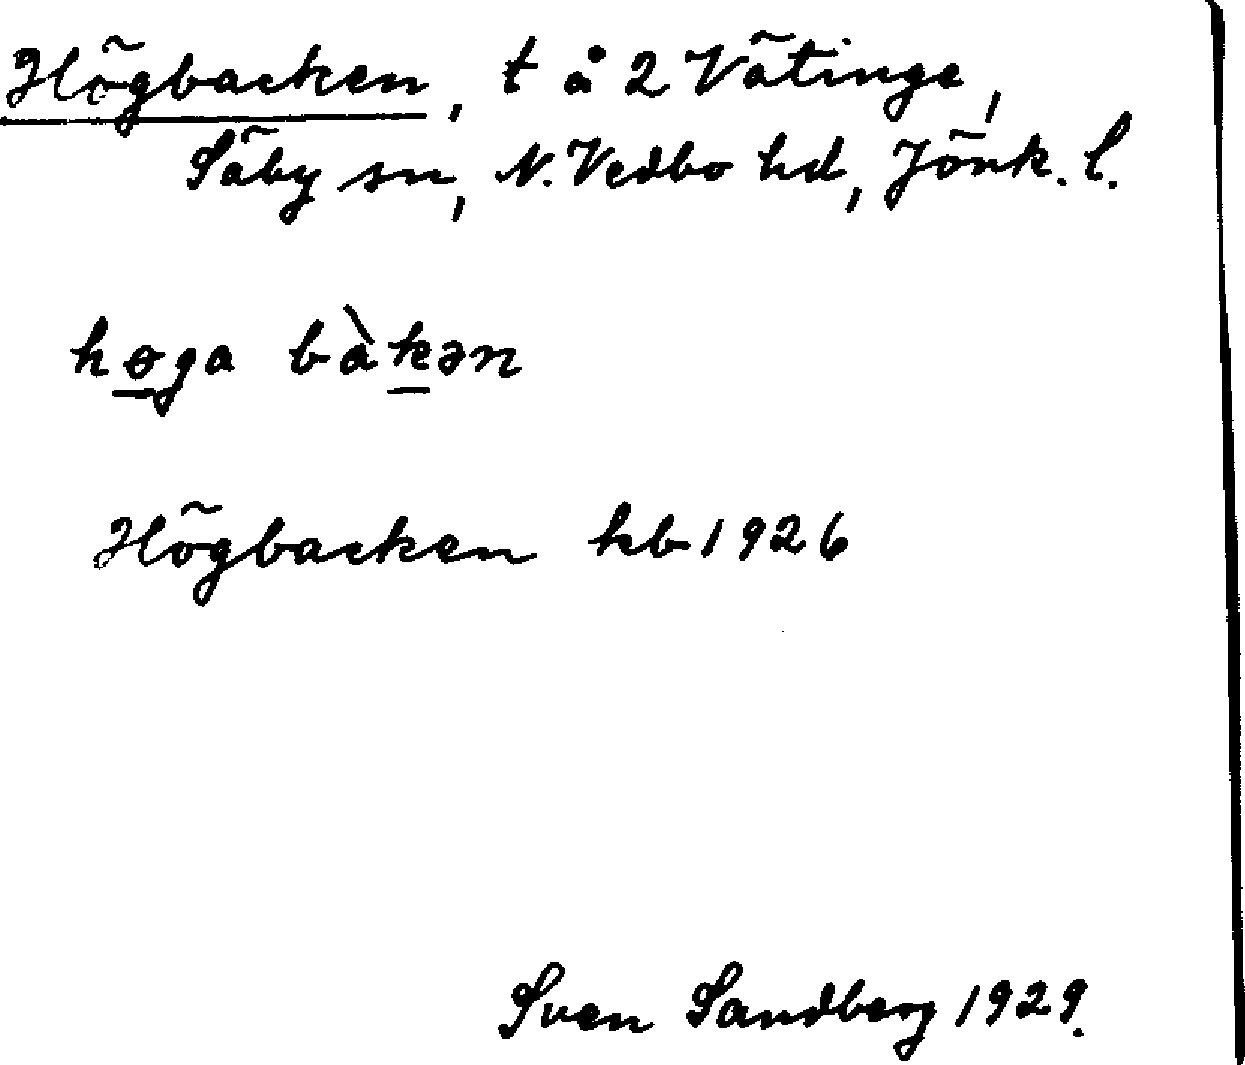 Högbacken, t å 2 Vätinge,
Säby sn, N. Vedbo hd, Jönk. l.
hɵga bàkən
Högbacken hb 1926
Sven Sandberg 1929.